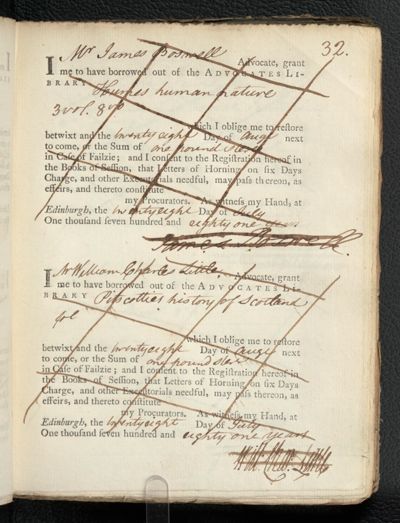 32.
I Mr James Boswell Advocate, grant
me to have borrowed out of the ADVOCATES LI-
BRARY Humes human nature
3 vol. 8vo
which I oblige me to restore
betwixt and the twenty eight Day of Augt next
to come, or the Sum of one pound ster.
in Case of Failzie; and I consent to the Registration hereof in
the Books of Session, that Letters of Horning on six Days
Charge, and other Executorials needful, may pass thereon, as
effeirs, and thereto constitute
my Procurators. As witness my Hand, at
Edinburgh, the twentyeight Day of July
One thousand seven hundred and eighty one years
James Boswell.
I Mr William Charles Little Advocate, grant
me to have borrowed out of the ADVOCATES LI-
BRARY Pitscotties history of Scotland
fol
which I oblige me to restore
betwixt and the twentyeight Day of Augt next
to come, or the Sum of one pound ster.
in Case of Failzie; and I consent to the Registration hereof in
the Books of Session, that Letters of Horning on six Days
Charge, and other Executorials needful, may pass thereon, as
effeirs, and thereto constitute
my Procurators. As witness my Hand, at
Edinburgh, the twentyeight Day of July
One thousand seven hundred and eighty one years
Will: Chas: Little